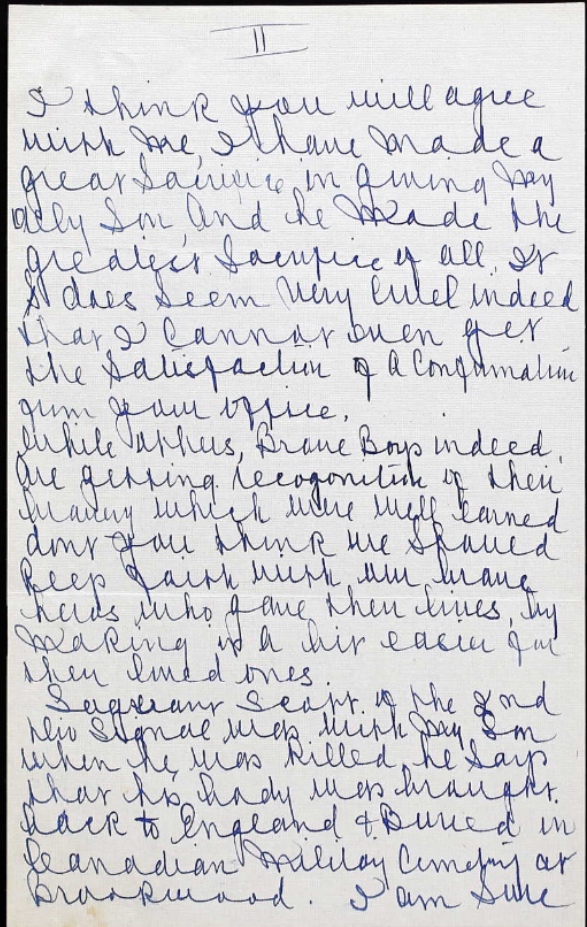 II
I think you will agree
with me, I have made a
great Sacrifice in giving my
only Son, And he Made the
greatest Sacrifice of all. It
does seem Very Cruel indeed
that I Cannot even get
the Satisfaction of A Confirmation
from your office.
While others, Brave Boys indeed,
are getting recogonition of their
bravery which were well earned
dont you think we Should
Keep Faith with our brave
heros who gave their lives, by
Making it a bit easier for
their loved ones.
Sergeant Scott of the 2nd
Div Signal was with my Son
when he was killed, he Says
that his body was brought
back to England & Buried in
Canadian Military Cemetry at
Brookwood. I am Sure